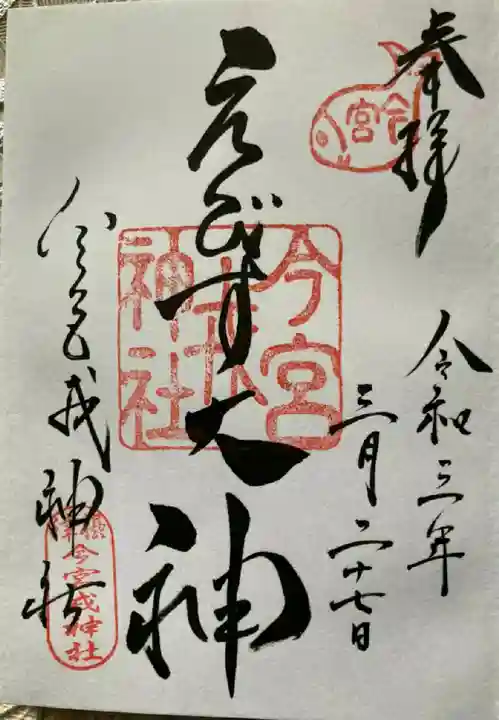 奉拝
今宮
令和三年
三月二十七日
えびす大神
今宮
戎
神社
今宮戎神社
今宮戎神社